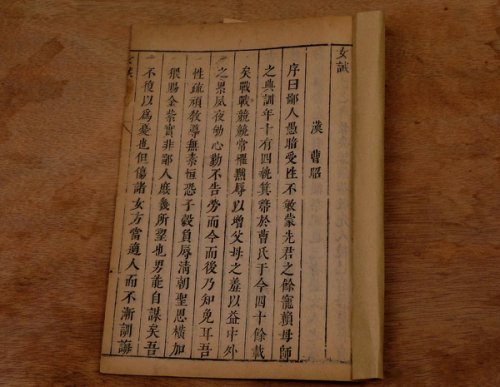 女誡
漢 曹昭
序曰鄙人愚暗受性不敏蒙先君之餘寵賴母師
之典訓年十有四執箕箒於曹氏于今四十餘載
矣戰戰兢兢常懼黜辱以增父母之羞以益中外
之累夙夜劬心勤不告勞而今而後乃知免耳吾
性疏頑教導無素恒恐子穀負辱清朝聖恩橫加
猥賜金紫實非鄙人庶幾所望也男能自謀矣吾
不復以爲憂也但傷諸女方當適人而不漸訓誨
女誡